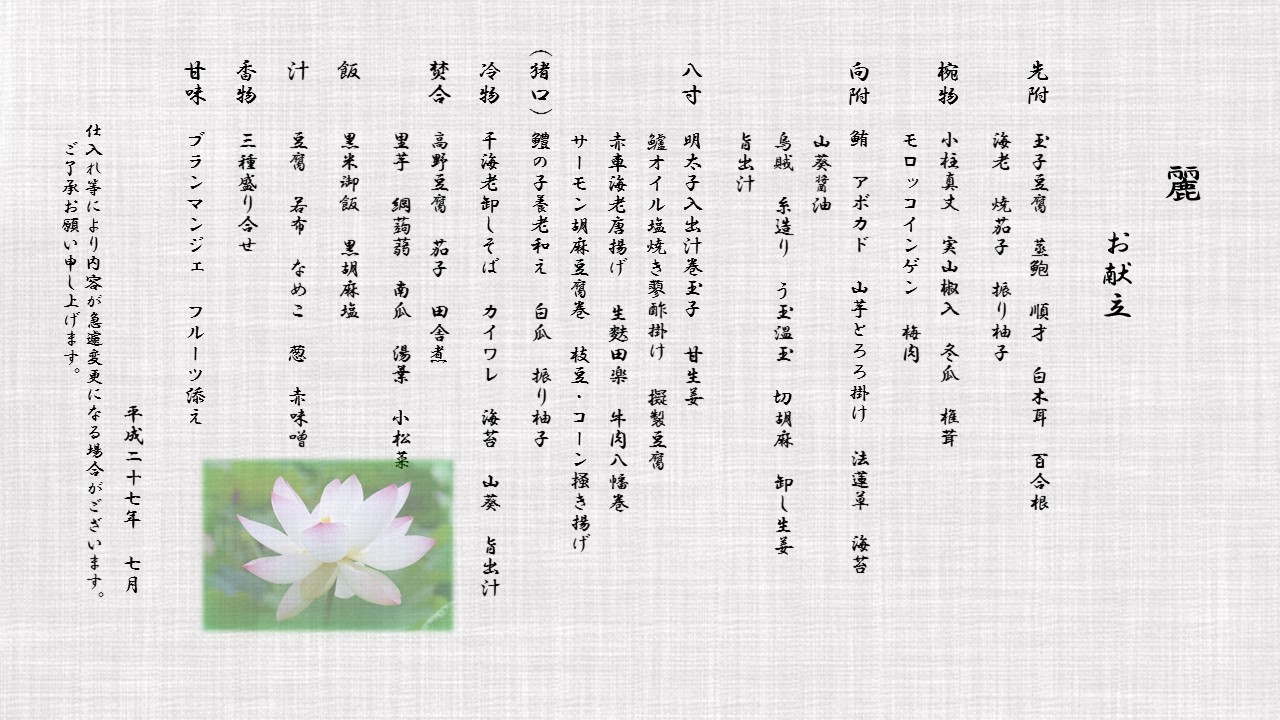 麗
お献立
先附 玉子豆腐 蒸鮑 順才 白木耳 百合根
海老 焼茄子 振り柚子
椀物 小柱真丈 実山椒入 冬瓜 椎茸
モロッコインゲン 梅肉
向附 鮪 アボカド 山芋とろろ掛け 法蓮草 海苔
山葵醤油
烏賊 糸造り う玉温玉 切胡麻 卸し生姜
旨出汁
八寸 明太子入出汁巻玉子 甘生姜
鱸オイル塩焼き蓼酢掛け 擬製豆腐
赤車海老唐揚げ 生麩田楽 牛肉八幡巻
サーモン胡麻豆腐巻 枝豆・コーン掻き揚げ
(猪口) 鱧の子養老和え 白瓜 振り柚子
冷物 干海老卸しそば カイワレ 海苔 山葵 旨出汁
焚合 高野豆腐 茄子 田舎煮
里芋 絹蒟蒻 南瓜 湯葉 小松菜
飯 黒米御飯 黒胡麻塩
汁 豆腐 若布 なめこ 葱 赤味噌
香物 三種盛り合せ
甘味 ブランマンジェ フルーツ添え
平成二十七年 七月
仕入れ等により内容が急遽変更になる場合がございます。
ご了承お願い申し上げます。